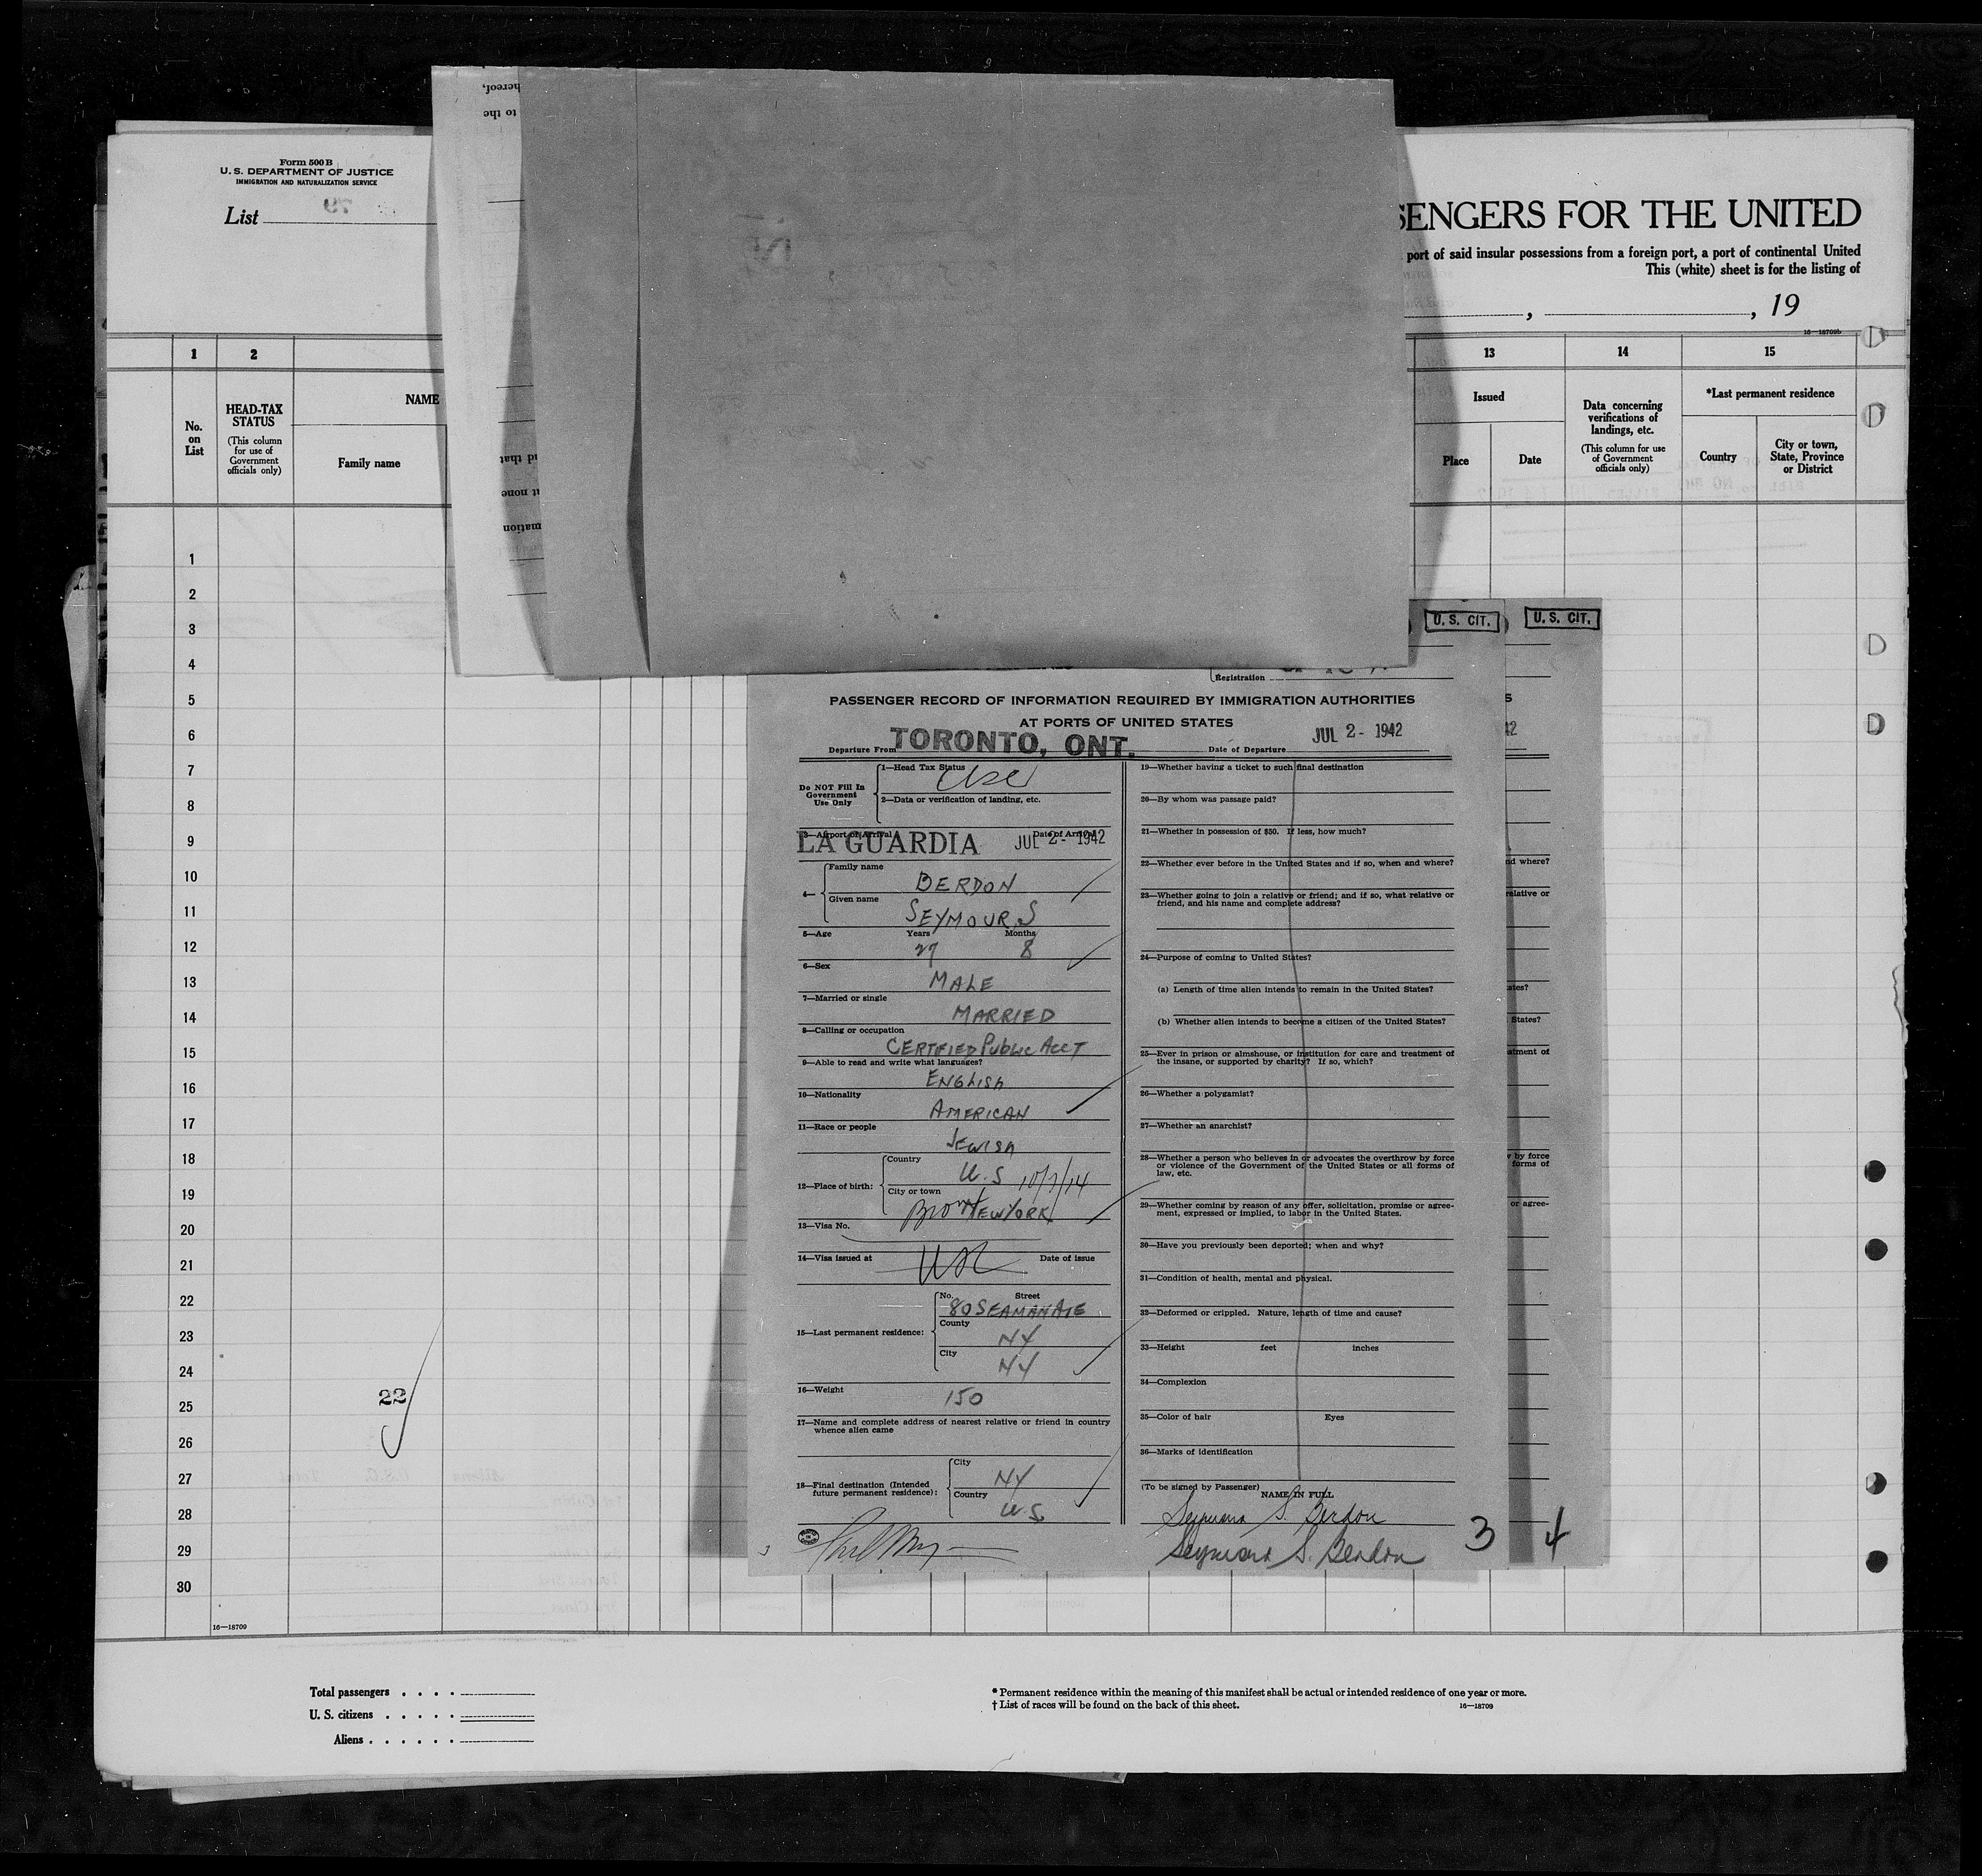 Form 500 B
U. S. DEPARTMENT OF JUSTICE
IMMIGRATION AND NATURALIZATION SERVICE
List
hereof,
to the
SENGERS FOR THE UNITED
port of said insular possessions from a foreign port, a port of continental United
This (white) sheet is for the listing of
, , 19
16—18709b
1 2 13 14 15
No. on List
HEAD-TAX STATUS
(This column for use of Government officials only)
NAME
Family name
Issued
Place
Date
Data concerning verifications of landings, etc.
(This column for use of Government officials only)
*Last permanent residence
Country
City or town, State, Province or District
1
2
3
4
5
6
7
8
9
10
11
12
13
14
15
16
17
18
19
20
21
22
23
24
25
26
27
28
29
30
22
16—18709
U. S. CIT.
U. S. CIT.
Registration
PASSENGER RECORD OF INFORMATION REQUIRED BY IMMIGRATION AUTHORITIES
AT PORTS OF UNITED STATES
Departure From TORONTO, ONT. Date of Departure JUL 2 - 1942
Do NOT Fill In Government Use Only
1—Head Tax Status
2—Data or verification of landing, etc.
3—Airport of Arrival Date of Arrival
LA GUARDIA JUL 2 - 1942
4—
Family name
BERDON
Given name
SEYMOUR S
5—Age Years Months
27 8
6—Sex
MALE
7—Married or single
MARRIED
8—Calling or occupation
CERTIFIED PUBLIC ACCT
9—Able to read and write what languages?
ENGLISH
10—Nationality
AMERICAN
11—Race or people
JEWISH
12—Place of birth:
Country
U.S 10/7/14
City or town
NEW YORK
13—Visa No.
14—Visa issued at Date of issue
15—Last permanent residence:
No. Street
80 SEAMAN AVE
County
NY
City
NY
16—Weight
150
17—Name and complete address of nearest relative or friend in country
whence alien came
18—Final destination (Intended
future permanent residence):
City
NY
Country
U.S.
19—Whether having a ticket to such final destination
20—By whom was passage paid?
21—Whether in possession of $50. If less, how much?
22—Whether ever before in the United States and if so, when and where?
23—Whether going to join a relative or friend; and if so, what relative or
friend, and his name and complete address?
24—Purpose of coming to United States?
(a) Length of time alien intends to remain in the United States?
(b) Whether alien intends to become a citizen of the United States?
25—Ever in prison or almshouse, or institution for care and treatment of
the insane, or supported by charity? If so, which?
26—Whether a polygamist?
27—Whether an anarchist?
28—Whether a person who believes in or advocates the overthrow by force
or violence of the Government of the United States or all forms of
law, etc.
29—Whether coming by reason of any offer, solicitation, promise or agree-
ment, expressed or implied, to labor in the United States.
30—Have you previously been deported; when and why?
31—Condition of health, mental and physical.
32—Deformed or crippled. Nature, length of time and cause?
33—Height feet inches
34—Complexion
35—Color of hair Eyes
36—Marks of identification
(To be signed by Passenger)
NAME IN FULL
Seymour S. Berdon
Seymour S. Berdon
3
4
nd where?
relative or
ates?
States?
atment of
by force
forms of
or agree-
Total passengers . . . .
U. S. citizens . . . . .
Aliens . . . . . .
* Permanent residence within the meaning of this manifest shall be actual or intended residence of one year or more.
† List of races will be found on the back of this sheet.
16—18709